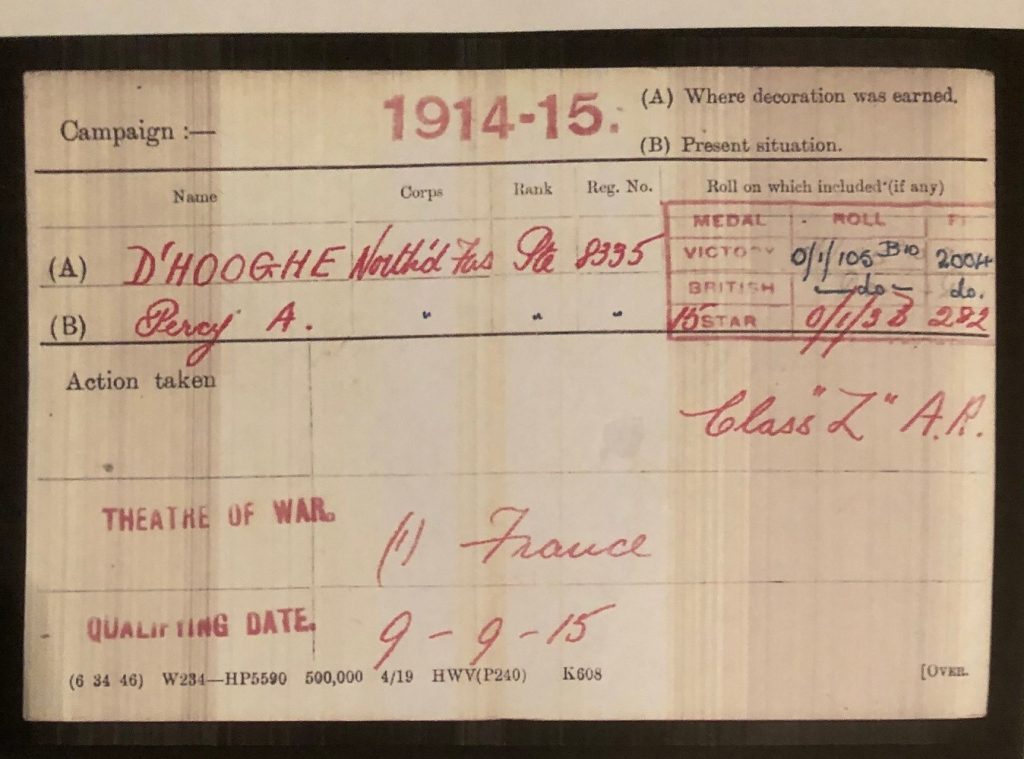 Campaign :— 1914-15. (A) Where decoration was earned.
(B) Present situation.
Name Corps Rank Reg. No. Roll on which included (if any)
MEDAL ROLL
(A) D'HOOGHE North'd Fus Pte 8335 VICTORY 0/1/105 B10 2004
BRITISH —do— do.
(B) Percy A. " " " 15 STAR 0/1/3 B 282
Action taken
Class "Z" A.R.
THEATRE OF WAR. (1) France
QUALIFYING DATE. 9 - 9 - 15
(6 34 46) W234—HP5590 500,000 4/19 HWV(P240) K608 [OVER.